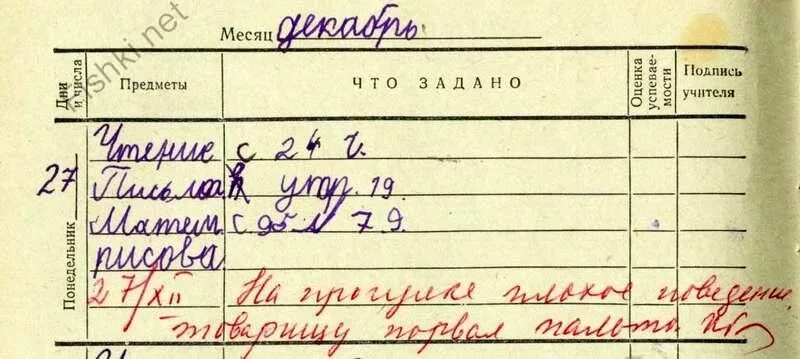 Месяц декабрь
Дни и числа
Предметы
ЧТО ЗАДАНО
Оценка успеваемости
Подпись учителя
Понедельник
27
Чтение с 24 ч.
Письмо упр. 19.
Матем с 95 № 79.
рисова
27/XII На прогулке плохое поведение,
товарищу порвал пальто.
nishki.net